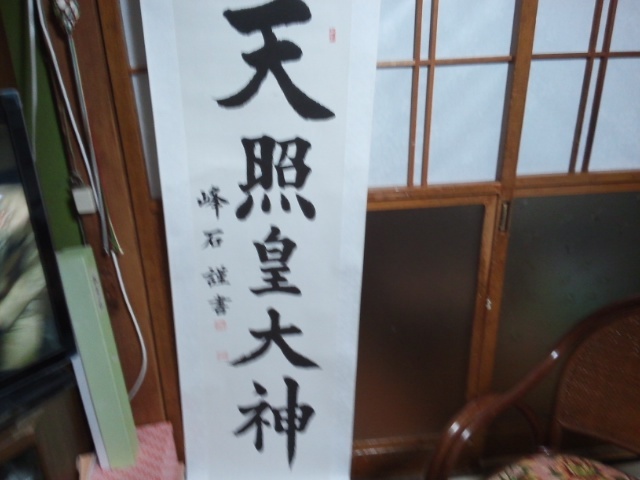 天照皇大神
峰石謹書